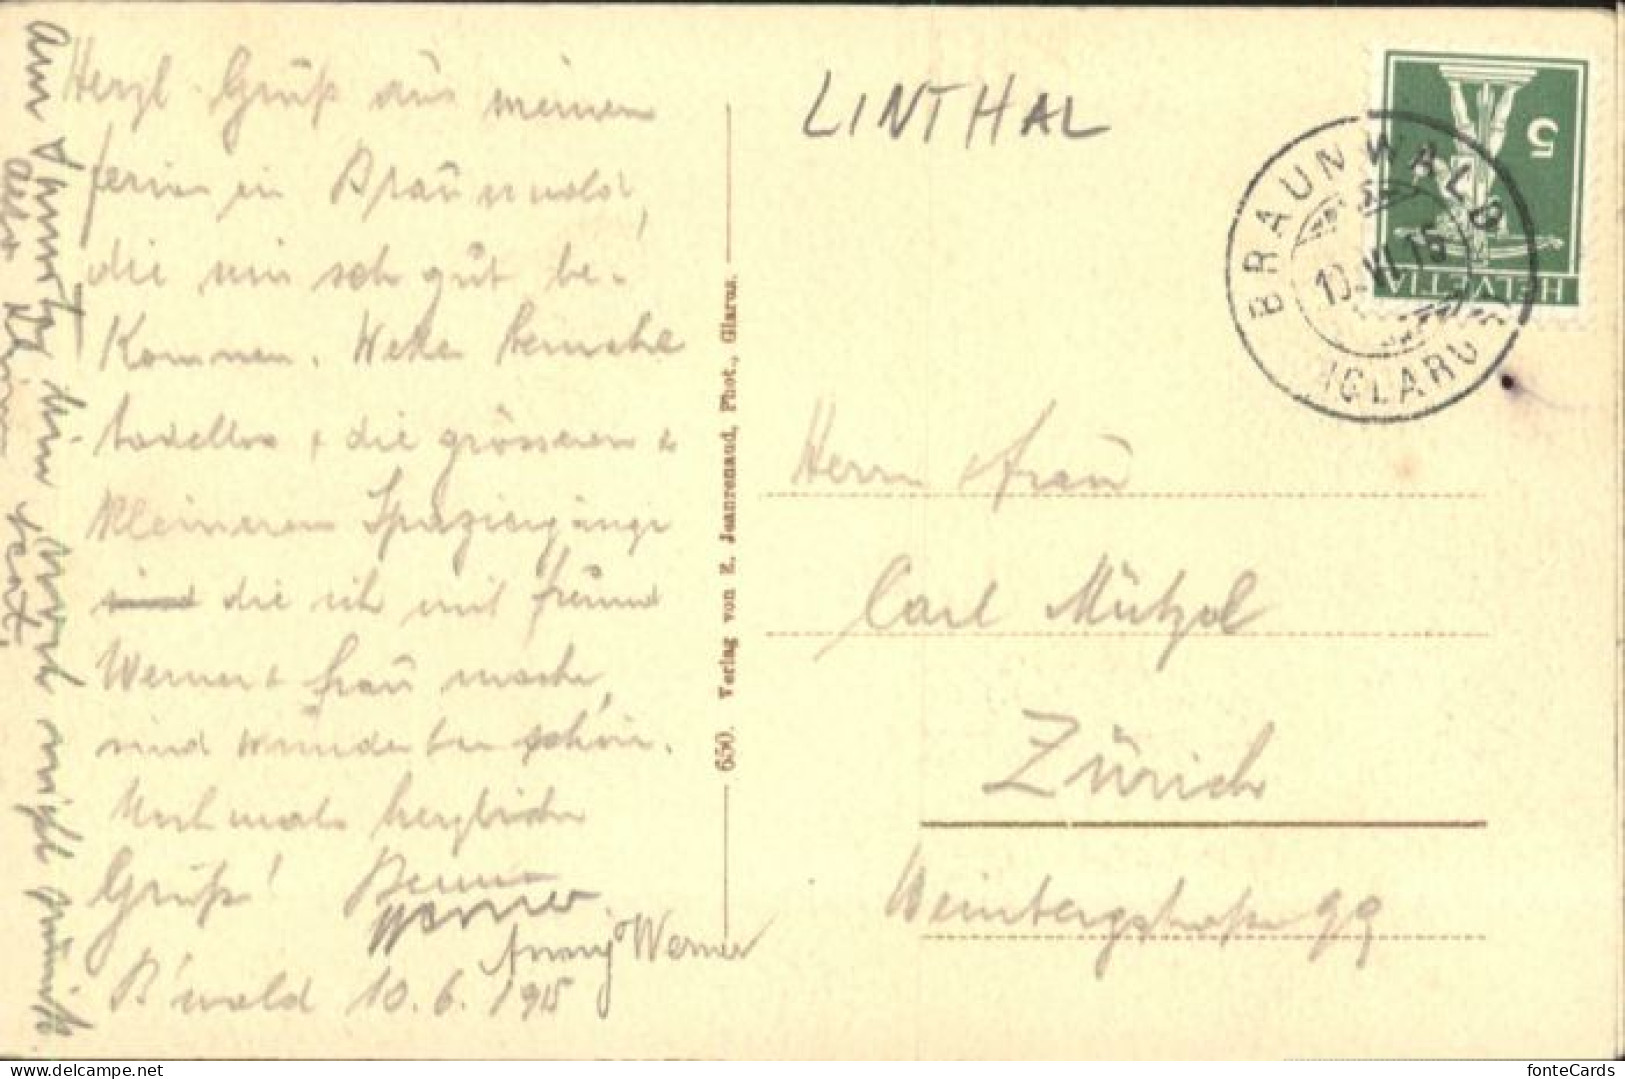 Herzl. Grüß aus meinen
ferien in Braunwald,
die mir sehr gut be-
kommen. Wetter
tadellos + die grösseren &
kleineren Spaziergänge
sind die ich mit freund
Werner & frau mache,
sind wunderbar schön.
Nochmals herzliche
Grüße!
Werner
Anny Werner
B'wald 10.6.1915
nicht
650. Verlag von E. Jeanrenaud, Phot., Glarus.
LINTHAL
HELVETIA
5
BRAUNWALD
10.VI.15
(GLARUS
Herrn & frau
Carl Mützel
Zürich
Weinbergstraße 99
fonteCards